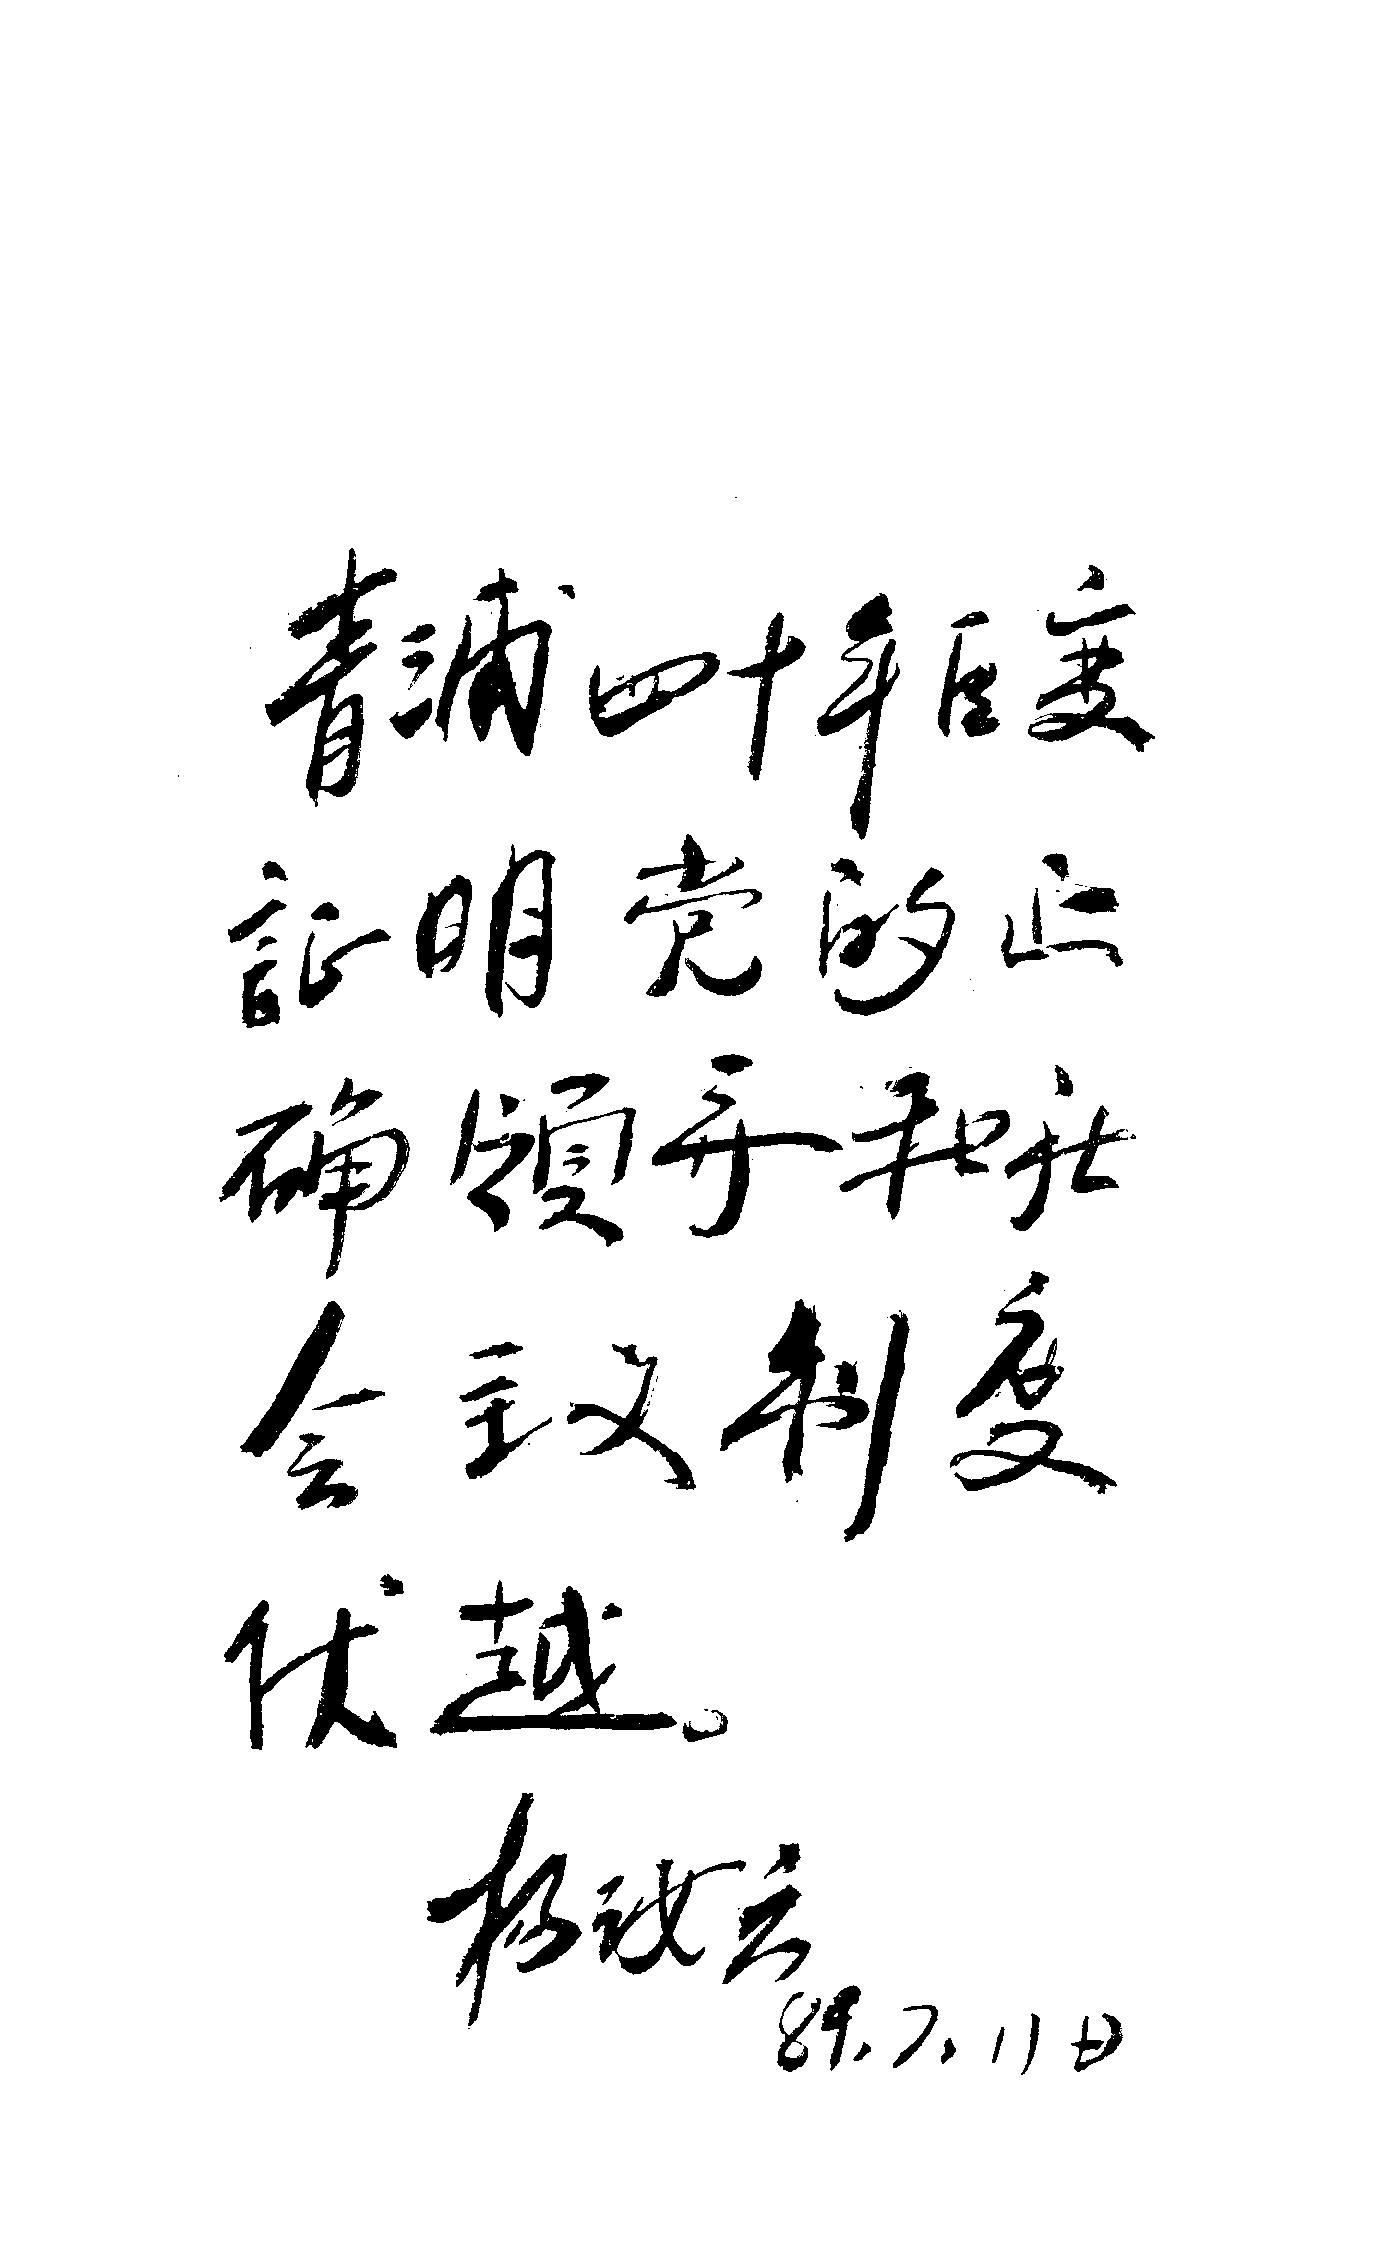 青浦四十年巨变
証明党的正
确领导和社
会主义制度
优越。
杨
89.7.11日